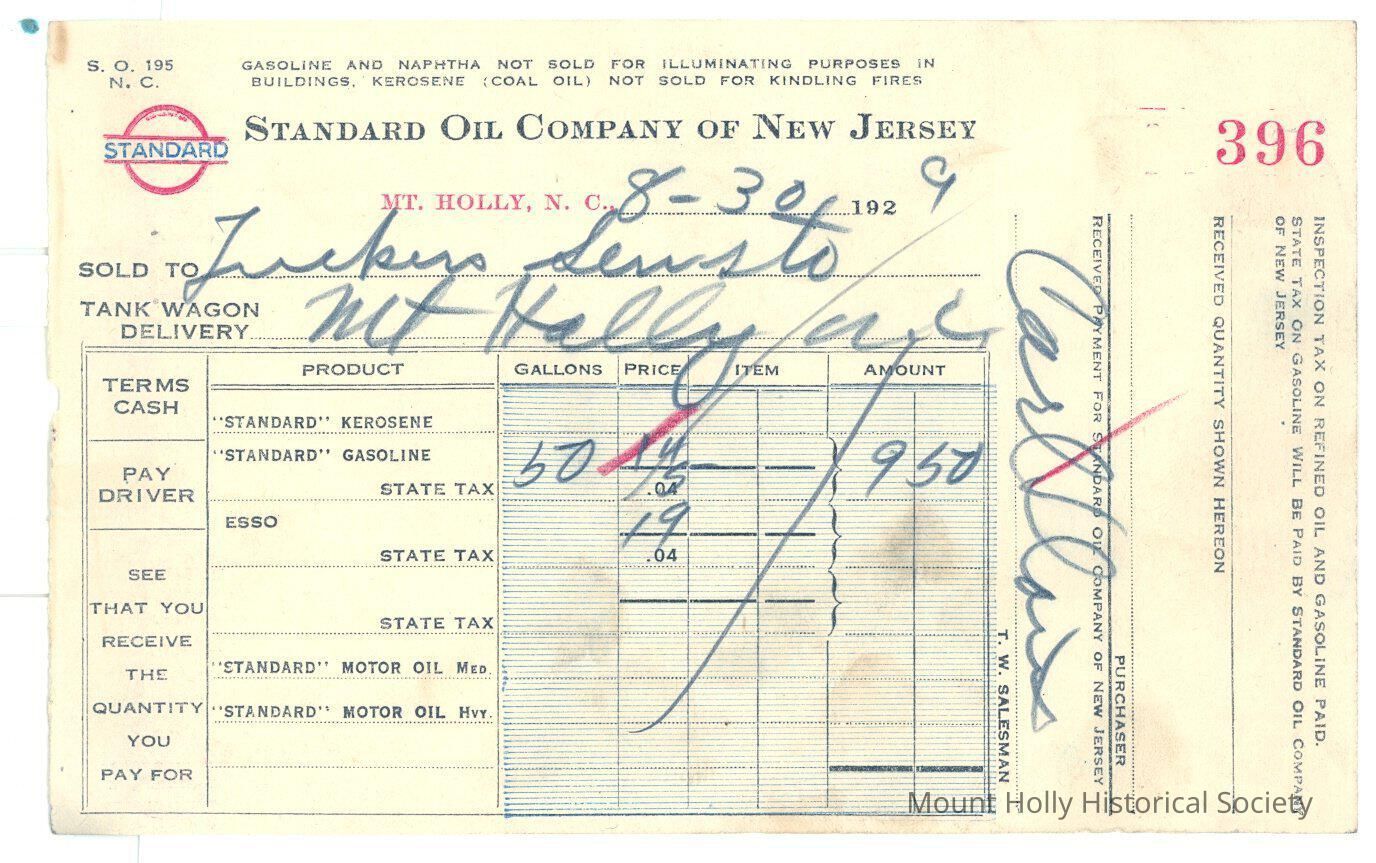 S. O. 195
N. C.
GASOLINE AND NAPHTHA NOT SOLD FOR ILLUMINATING PURPOSES IN
BUILDINGS, KEROSENE (COAL OIL) NOT SOLD FOR KINDLING FIRES
STANDARD
STANDARD OIL COMPANY OF NEW JERSEY
396
MT. HOLLY, N. C., 8-30 1929
SOLD TO Tuckers
TANK WAGON
DELIVERY Mt Holly n.c
TERMS
CASH
PAY
DRIVER
SEE
THAT YOU
RECEIVE
THE
QUANTITY
YOU
PAY FOR
PRODUCT GALLONS PRICE ITEM AMOUNT
"STANDARD" KEROSENE
"STANDARD" GASOLINE 50 9 50
STATE TAX .04
ESSO 19
STATE TAX .04
STATE TAX
"STANDARD" MOTOR OIL MED.
"STANDARD" MOTOR OIL HVY.
T. W. SALESMAN
Carl
RECEIVED PAYMENT FOR STANDARD OIL COMPANY OF NEW JERSEY
PURCHASER
RECEIVED QUANTITY SHOWN HEREON
INSPECTION TAX ON REFINED OIL AND GASOLINE PAID.
STATE TAX ON GASOLINE WILL BE PAID BY STANDARD OIL COMPANY
OF NEW JERSEY
Mount Holly Historical Society